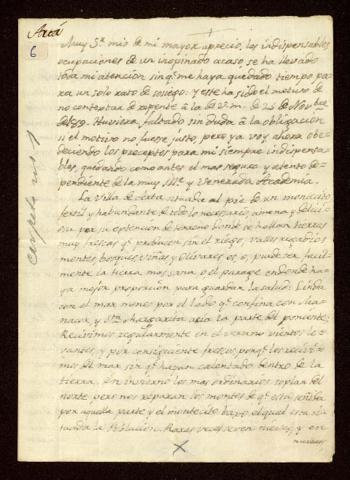 Artá
6
Carpeta num. 1
Muy S.r mio de mi mayor aprecio, las indispensables
ocupaciones de un inopinado acaso, se ha llevado
toda mi atencion sin q.e me haya quedado tiempo pa
ra un solo rato de sosiego: y este ha sido el motivo de
no contextar de repente a la de v.m. de 24 de Nov.bre
de 89. Huviera faltado sin duda a la obligacion
si el motivo no fuese justo, pero ya voy ahora obe
deciendo los preceptos para mi siempre indispensa
bles, quedando como antes el mas seguro y atento de
pendiente de la muy Ill.e y Venerada Academia.
La Villa de Arta situada al pie de un montecito
fertil y habundante de todo lo necesario, amena y delicio
sa por su extencion de terreno donde se hallan tierras
muy frescas q.e producen sin el riego, valles regadios
montes bosques viñas y Olivares es, o puede ser facil
mente la tierra mas sana o el parage en donde ha
ya mejor proporcion para guardar la salud. Linda
con el mar menos por el lado q.e confina con Ma
nacor y S.ta Margarita acia la parte del poniente.
Recivimos regularmente en el verano vientos le
vantes, y por consiguiente frescos, porq.e los recivi
mos del mar sin q.e hayan calentado dentro de la
tierra. En invierno los mas ordinarios soplan del
norte pero nos reparan los montes de q.e está ceñida
por aquella parte y el montecito bajo el qual esta si
tuada la Poblacion. Raras veces se ven nieves, y en